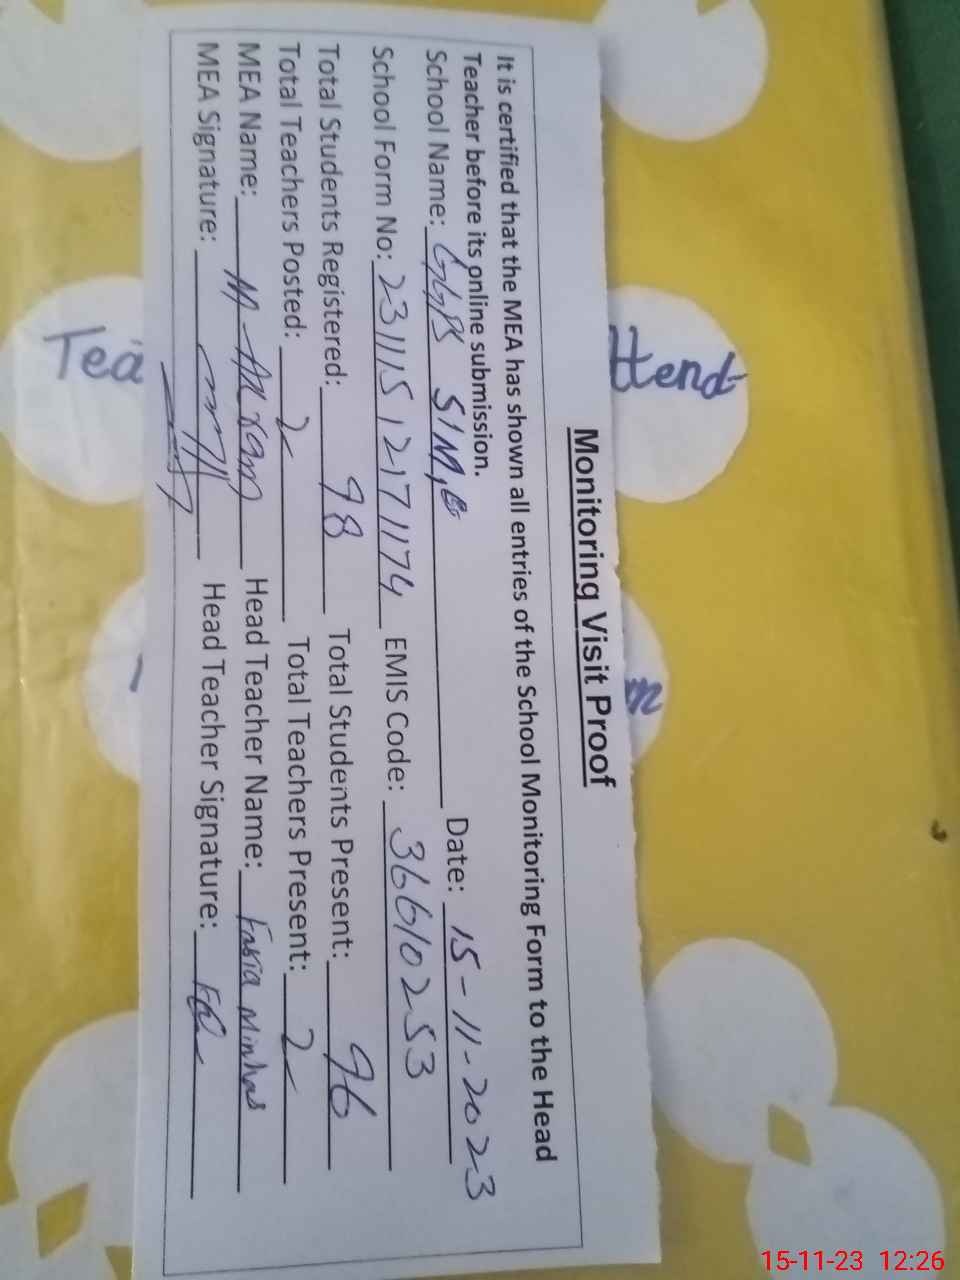 Monitoring Visit Proof
It is certified that the MEA has shown all entries of the School Monitoring Form to the Head
Teacher before its online submission.
School Name: GGPS Date: 15-11-2023
School Form No: 23111512171174 EMIS Code: 36610253
Total Students Registered: 98 Total Students Present: 96
Total Teachers Posted: 2 Total Teachers Present: 2
MEA Name: M-Akram Head Teacher Name: Fasia Minhas
MEA Signature: Head Teacher Signature:
Tea
ttend
15-11-23 12:26